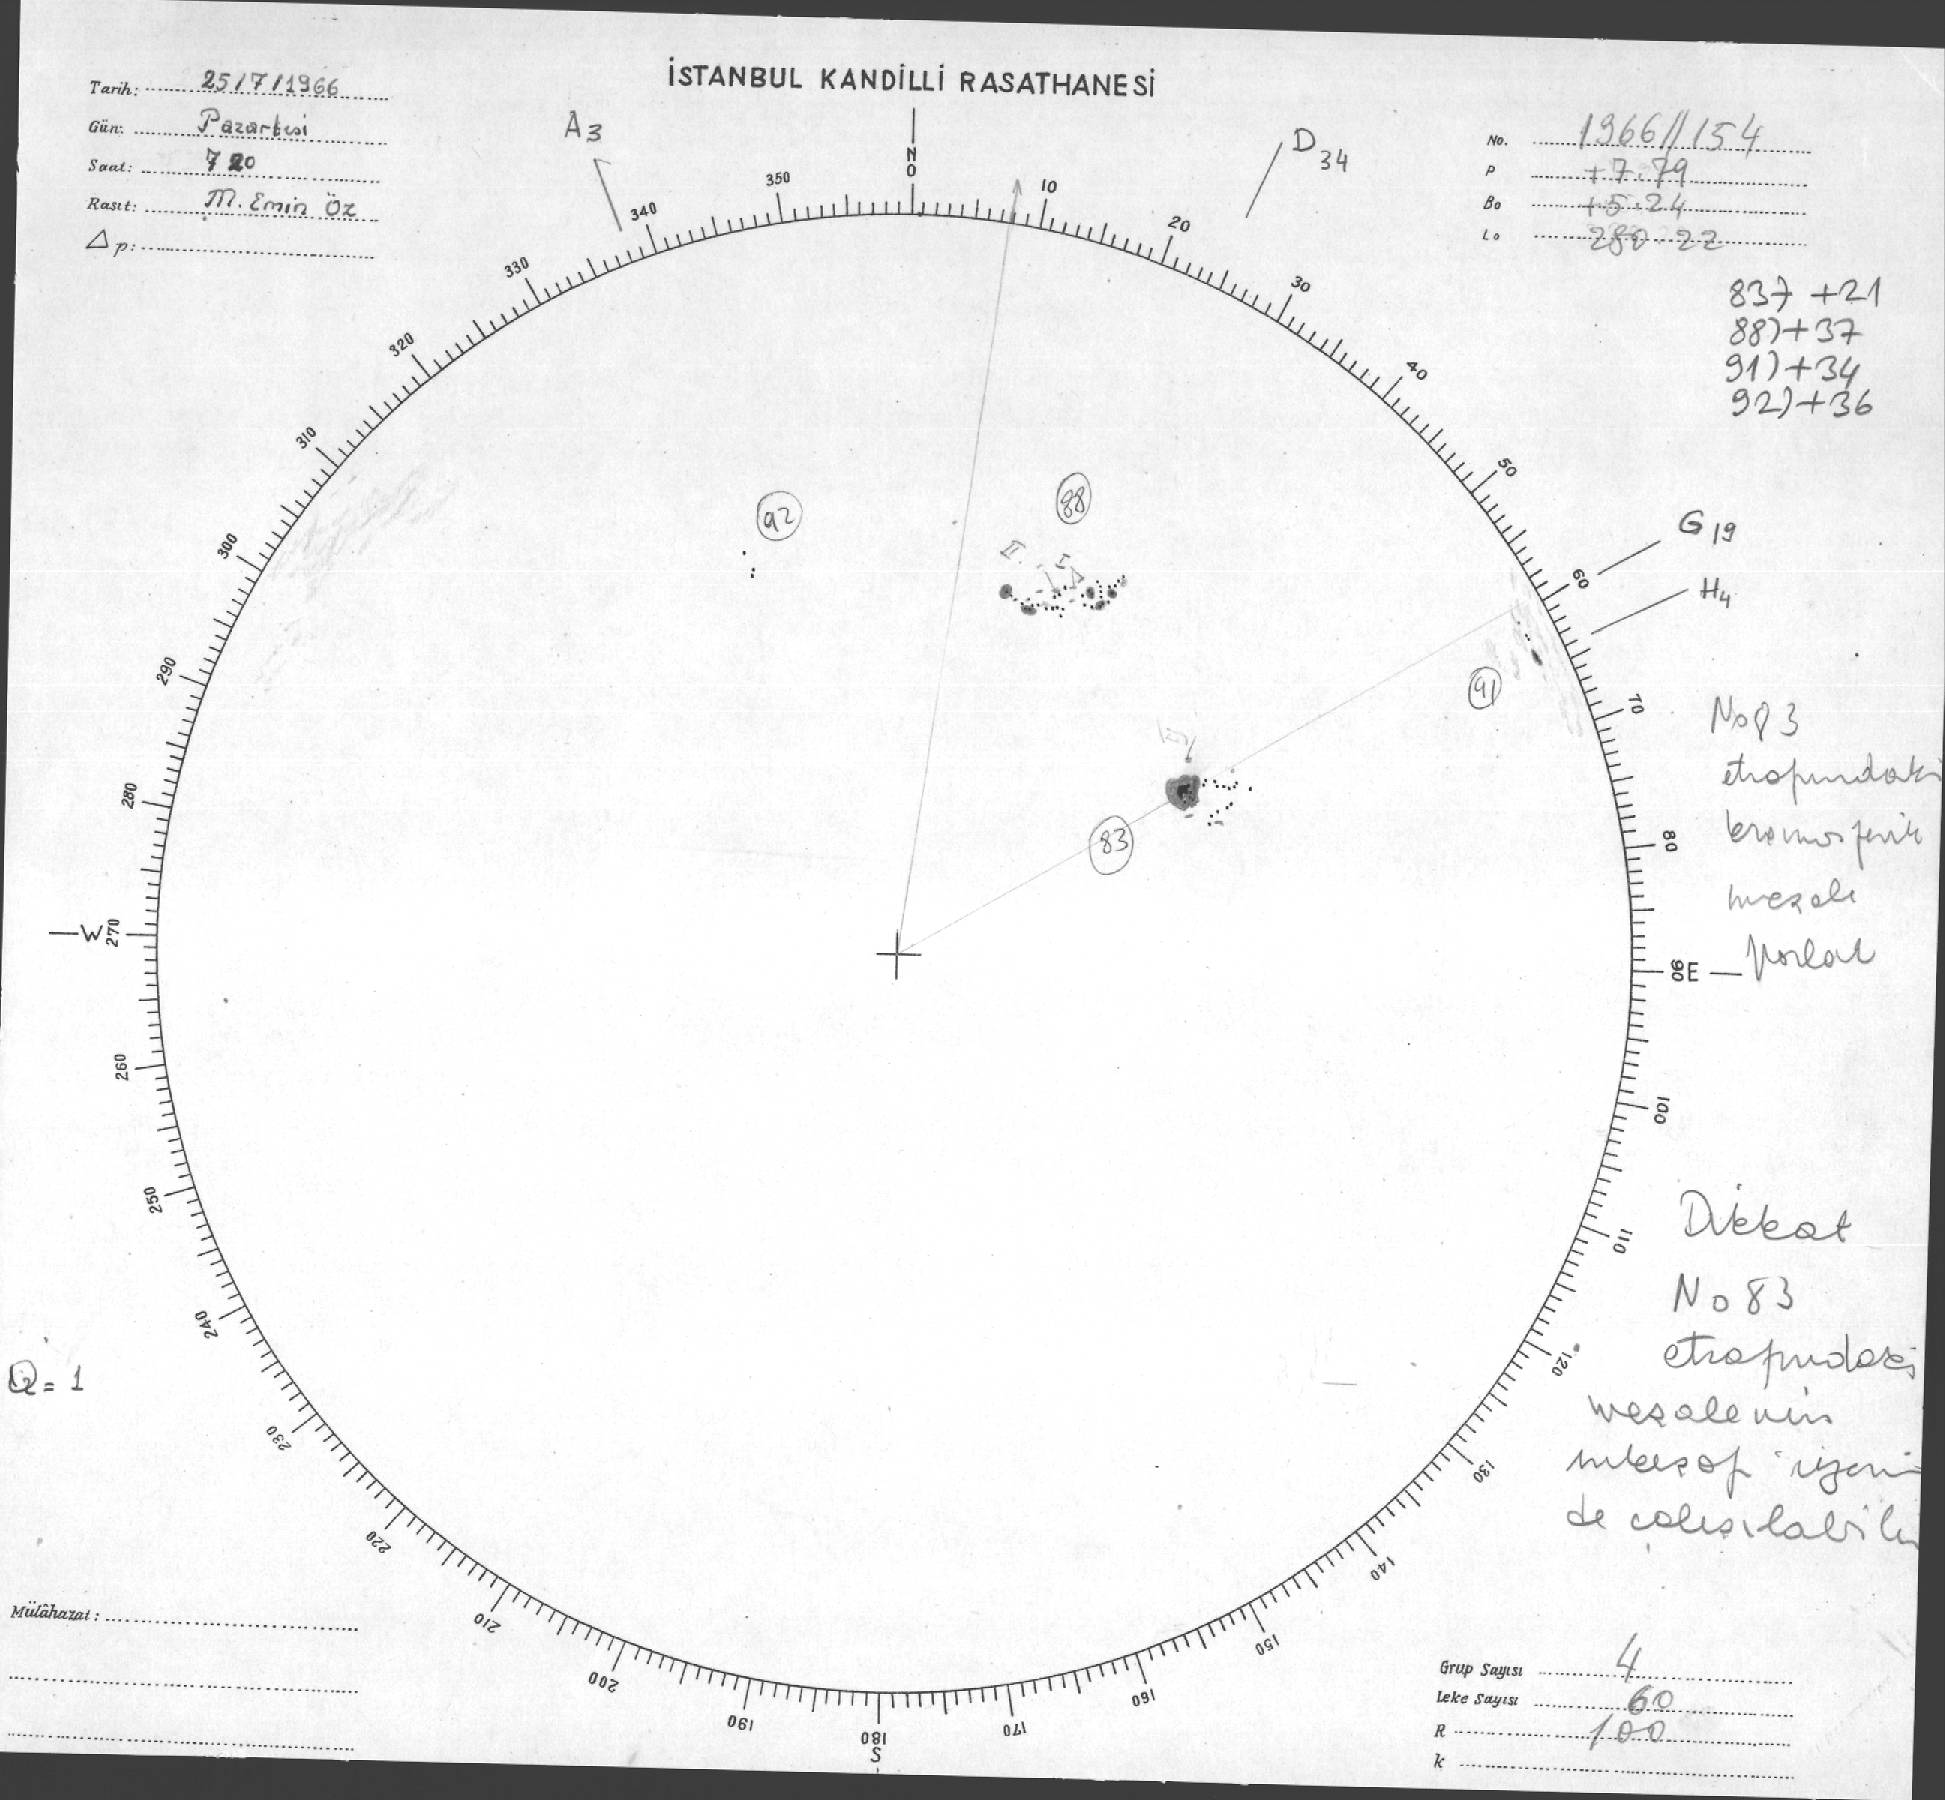 İSTANBUL KANDİLLİ RASATHANESİ
Tarih: 25/7/1966
Gün: Pazartesi
Saat: 7 20
Rasıt: M. Emin Öz
Δp:
No. 1966//154
P +7.79
Bo +5.24
Lo 280.22
A3
D34
N
0
10
20
30
40
50
60
70
80
90 E
100
110
120
130
140
150
160
170
180
S
190
200
210
220
230
240
250
260
W 270
280
290
300
310
320
330
340
350
83) +21
88) +37
91) +34
92) +36
G19
H4
92
88
II
I
91
83
No 83
etrafındaki
kromosferik
meşale
Parlak
Dikkat
No 83
etrafındaki
meşalenin
inkişaf üzerin
de çalışılabilir
Q = 1
Mülâhazat:
Grup Sayısı 4
Leke Sayısı 60
R 100
k